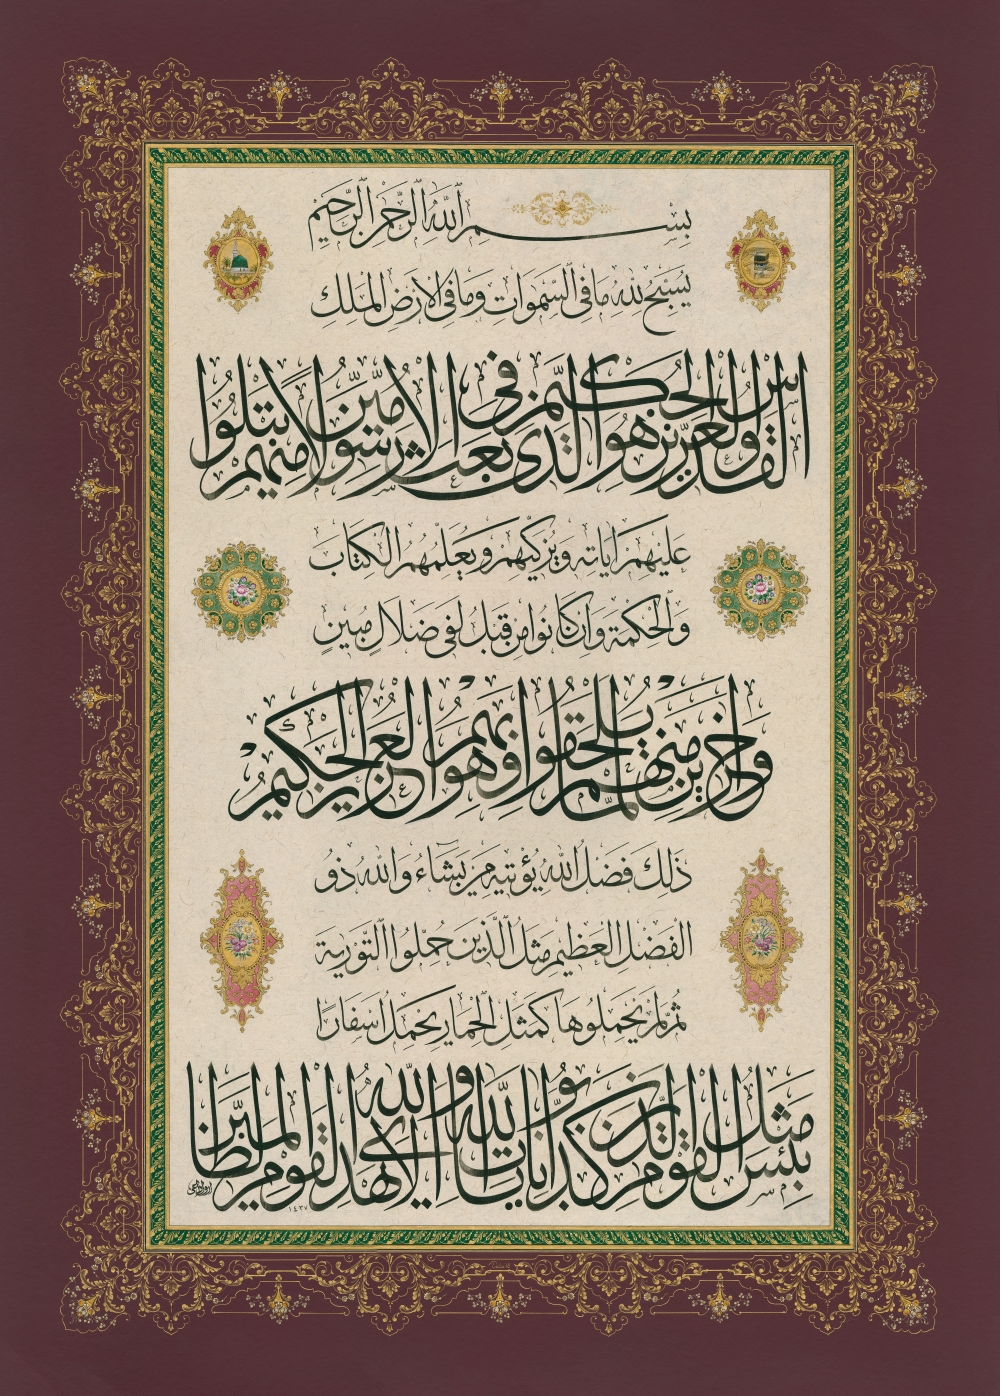 بسم الله الرحمن الرحيم
يسبح لله ما في السموات وما في الارض الملك
القدوس العزيز الحكيم هو الذي بعث في الاميين رسولا منهم يتلوا
عليهم اياته ويزكيهم ويعلمهم الكتاب
والحكمة وان كانوا من قبل لفي ضلال مبين
واخرين منهم لما يلحقوا بهم وهو العزيز الحكيم
ذلك فضل الله يؤتيه من يشاء والله ذو
الفضل العظيم مثل الذين حملوا التورية
ثم لم يحملوها كمثل الحمار يحمل اسفارا
بئس مثل القوم الذين كذبوا بايات الله والله لا يهدي القوم الظالمين
١٤٣٧